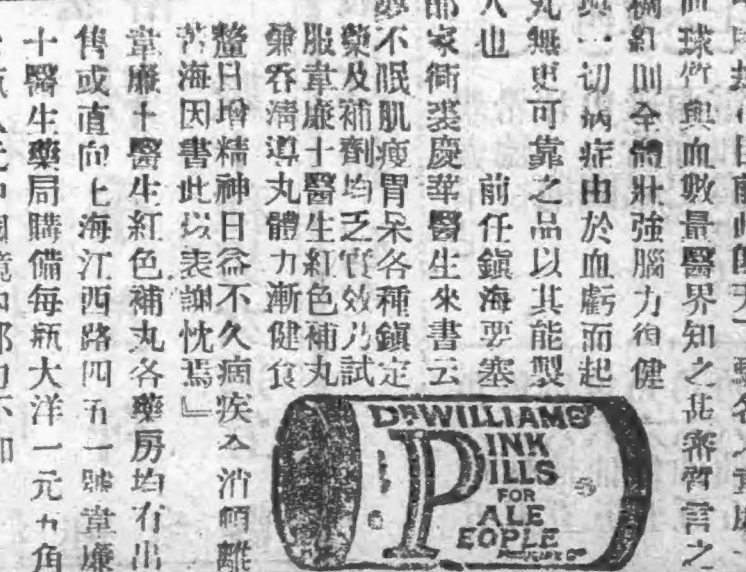 血球質與血數量醫界知之甚審質言之
則全體壯強腦力
一切病症由於血虧而起
丸無更可靠之品以其能製
人也 前任鎮海要塞
家衖裘慶華醫生來書云
不眠肌瘦胃呆各種鎮定
藥及補劑均乏實效乃試
服韋廉士醫生紅色補丸
兼吞清導丸體力漸健食
量日增精神日益不久痼疾全消頓離
苦海因書此以表謝忱焉』
韋廉士醫生紅色補丸各藥房均有出
售或直向上海江西路四五一號韋廉
士醫生藥局購備每瓶大洋一元五角
DR WILLIAMS'
PINK
PILLS
FOR
PALE
PEOPLE